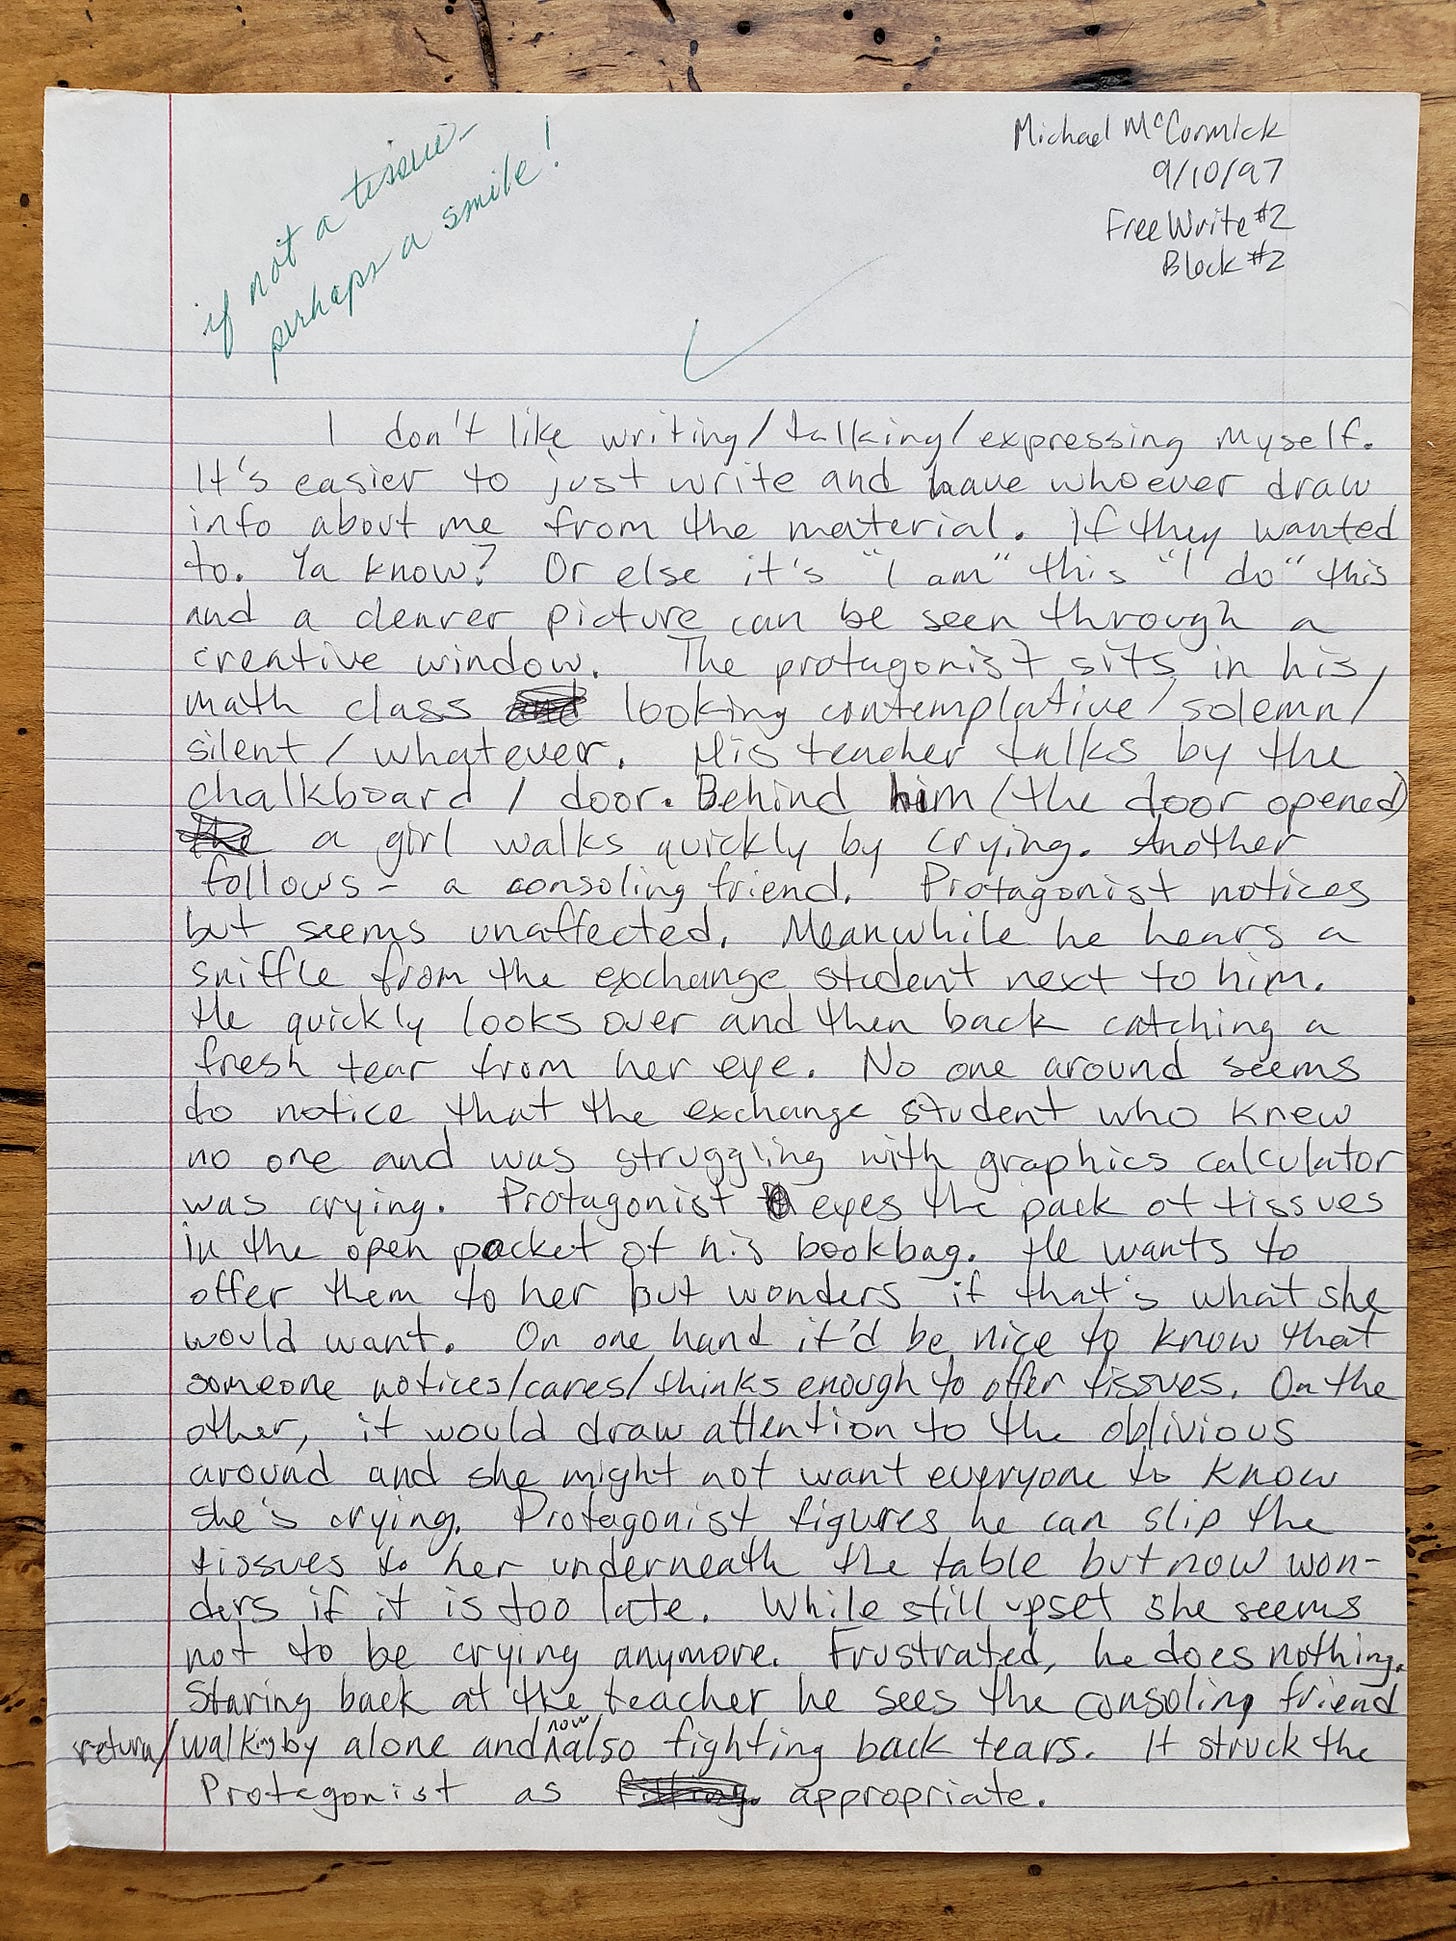 if not a tissue-
perhaps a smile!
Michael McCormick
9/10/97
Free Write #2
Block #2
I don't like writing/talking/expressing myself.
It's easier to just write and have whoever draw
info about me from the material. If they wanted
to. Ya know? Or else it's "I am" this "I do" this
and a clearer picture can be seen through a
creative window. The protagonist sits in his
math class and looking contemplative/solemn/
silent/whatever. His teacher talks by the
chalkboard / door. Behind him (the door opened)
the a girl walks quickly by crying. Another
follows - a consoling friend. Protagonist notices
but seems unaffected. Meanwhile he hears a
sniffle from the exchange student next to him.
He quickly looks over and then back catching a
fresh tear from her eye. No one around seems
to notice that the exchange student who knew
no one and was struggling with graphics calculator
was crying. Protagonist eyes the pack of tissues
in the open pocket of his bookbag. He wants to
offer them to her but wonders if that's what she
would want. On one hand it'd be nice to know that
someone notices/cares/thinks enough to offer tissues. On the
other, it would draw attention to the oblivious
around and she might not want everyone to know
she's crying. Protagonist figures he can slip the
tissues to her underneath the table but now won-
ders if it is too late. While still upset she seems
not to be crying anymore. Frustrated, he does nothing.
Staring back at the teacher he sees the consoling friend
return/walking by alone and now also fighting back tears. It struck the
Protagonist as fitting. appropriate.